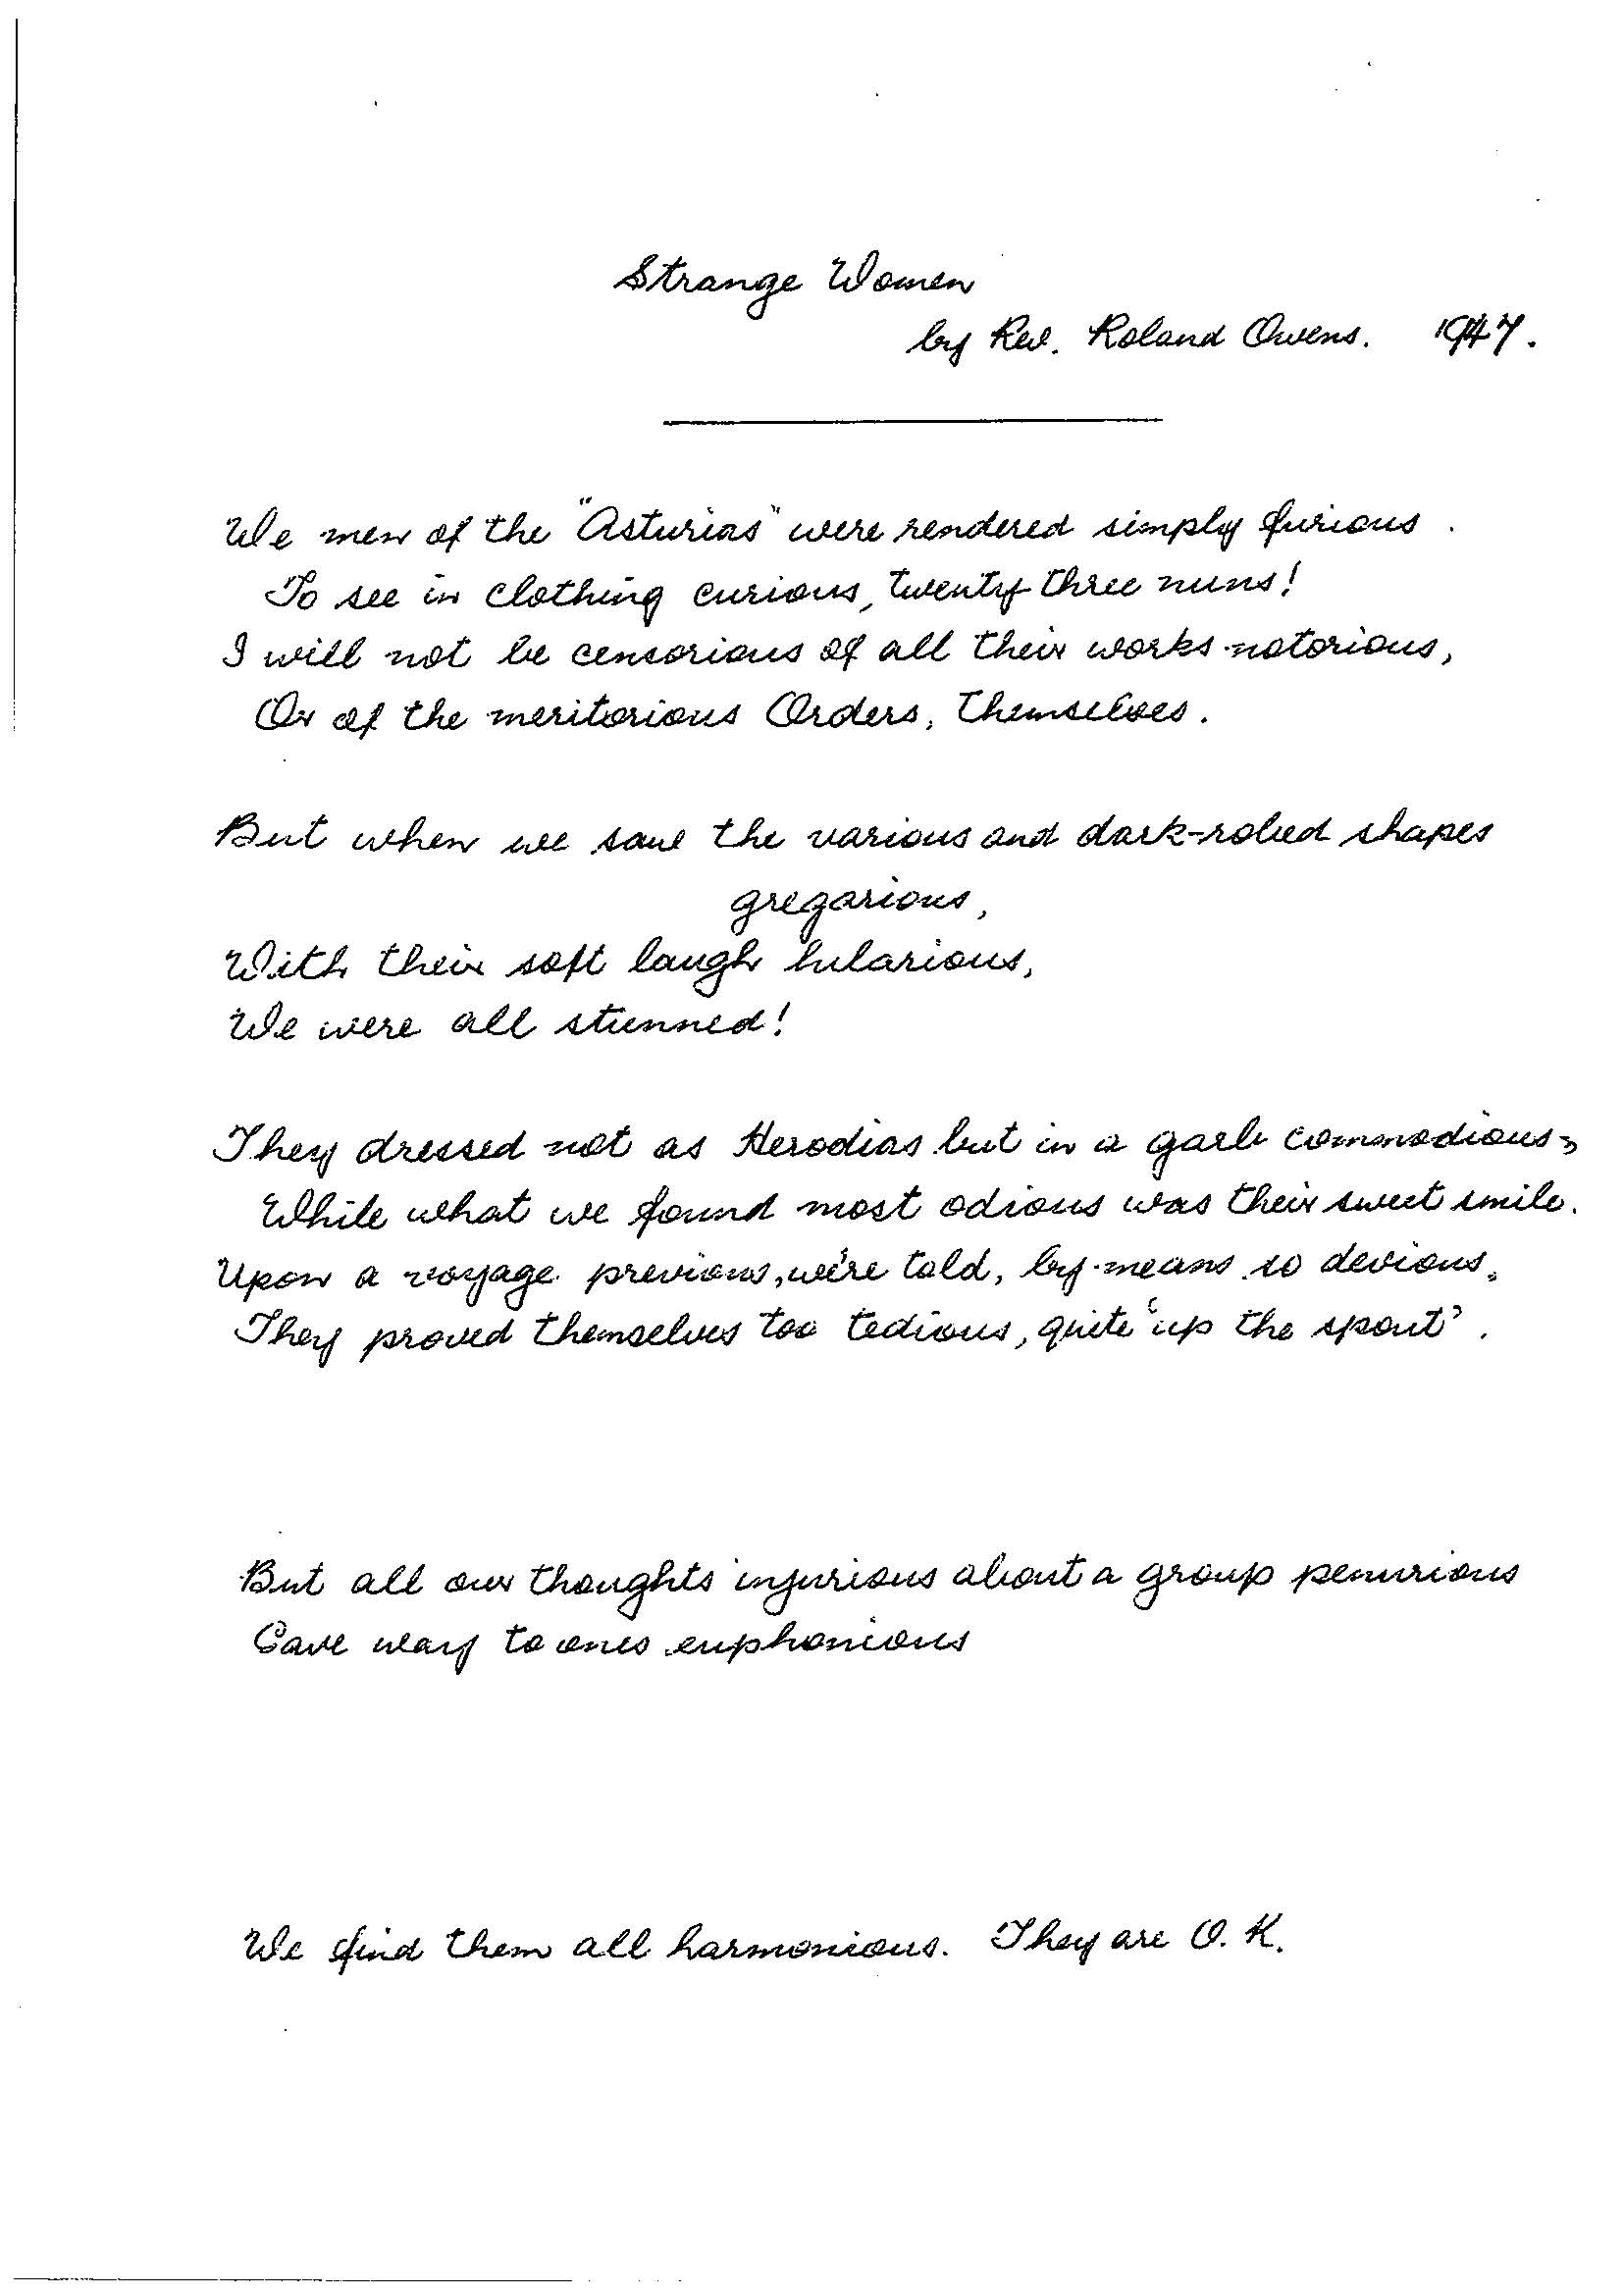 Strange Women
by Rev. Roland Owens. 1947.
We men of the "Asturias" were rendered simply furious.
To see in clothing curious, twenty three nuns!
I will not be censorious of all their works notorious,
Or of the meritorious Orders, themselves.
But when we saw the various and dark-robed shapes
gregarious,
With their soft laugh hilarious,
We were all stunned!
They dressed not as Herodias but in a garb commodious,
While what we found most odious was their sweet smile.
Upon a voyage previous, we're told, by means so devious,
They proved themselves too tedious, quite 'up the spout'.
But all our thoughts injurious about a group penurious
Gave way to ones euphonious
We find them all harmonious. They are O.K.